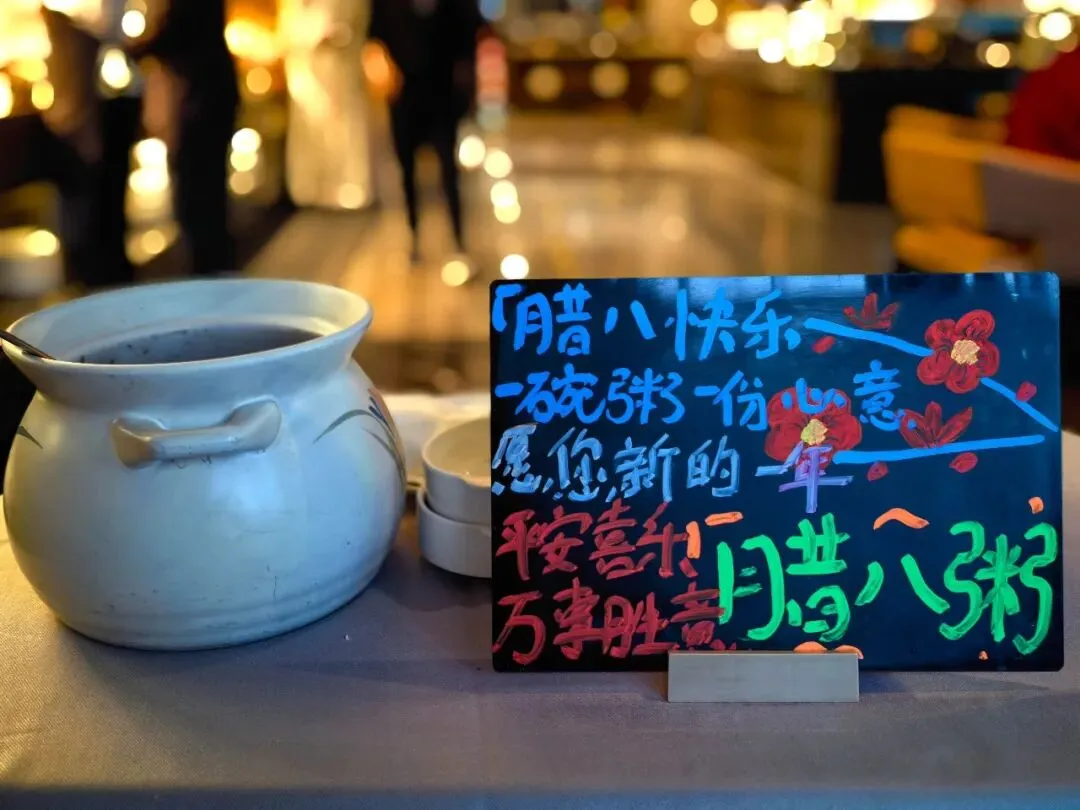 「腊八快乐
一碗粥一份心意
愿您新的一年
平安喜乐
万事胜意
腊八粥